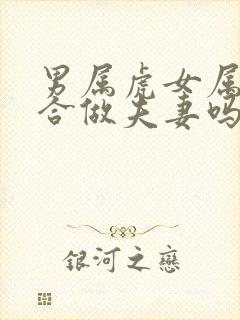 男属虎女属
合做夫妻吗
銀河之戀